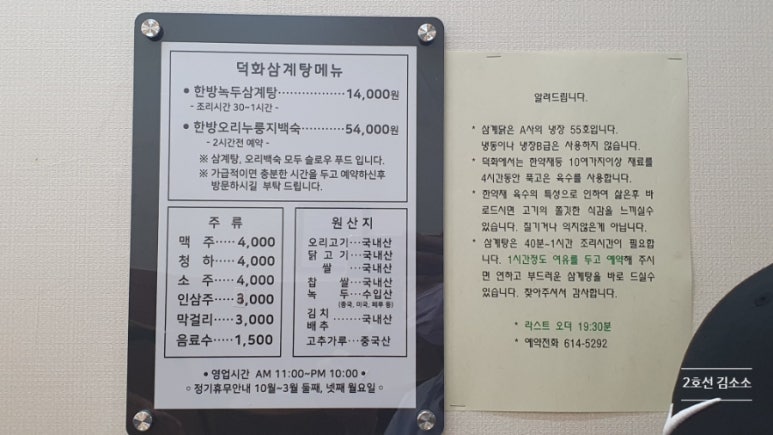 덕화삼계탕메뉴
● 한방녹두삼계탕··················14,000원
- 조리시간 30~1시간 -
● 한방오리누룽지백숙···········54,000원
- 2시간전 예약 -
※ 삼계탕, 오리백숙 모두 슬로우 푸드 입니다.
※ 가급적이면 충분한 시간을 두고 예약하신후
방문하시길 부탁 드립니다.
주 류
맥 주·····4,000
청 하·····4,000
소 주·····4,000
인삼주····3,000
막걸리····3,000
음료수····1,500
원 산 지
오리고기···국내산
닭 고 기···국내산
쌀 국내산
찹 쌀···국내산
녹 두···수입산
(중국, 미국, 페루 등)
김치
배추 ······국내산
고추가루···중국산
● 영업시간 AM 11:00~PM 10:00 ●
○ 정기휴무안내 10월~3월 둘째, 넷째 월요일 ○
알려드립니다.
* 삼계닭은 A사의 냉장 55호입니다.
냉동이나 냉장B급은 사용하지 않습니다.
* 덕화에서는 한약재등 10여가지이상 재료를
4시간동안 푹고은 육수를 사용합니다.
* 한약재 육수의 특성으로 인하여 삶은후 바
로드시면 고기의 쫄깃한 식감을 느끼실수
있습니다. 질기거나 익지않은게 아닙니다.
* 삼계탕은 40분~1시간 조리시간이 필요합
니다. 1시간정도 여유를 두고 예약해 주시
면 연하고 부드러운 삼계탕을 바로 드실수
있습니다. 찾아주셔서 감사합니다.
* 라스트 오더 19:30분
* 예약전화 614-5292
2호선 김소소